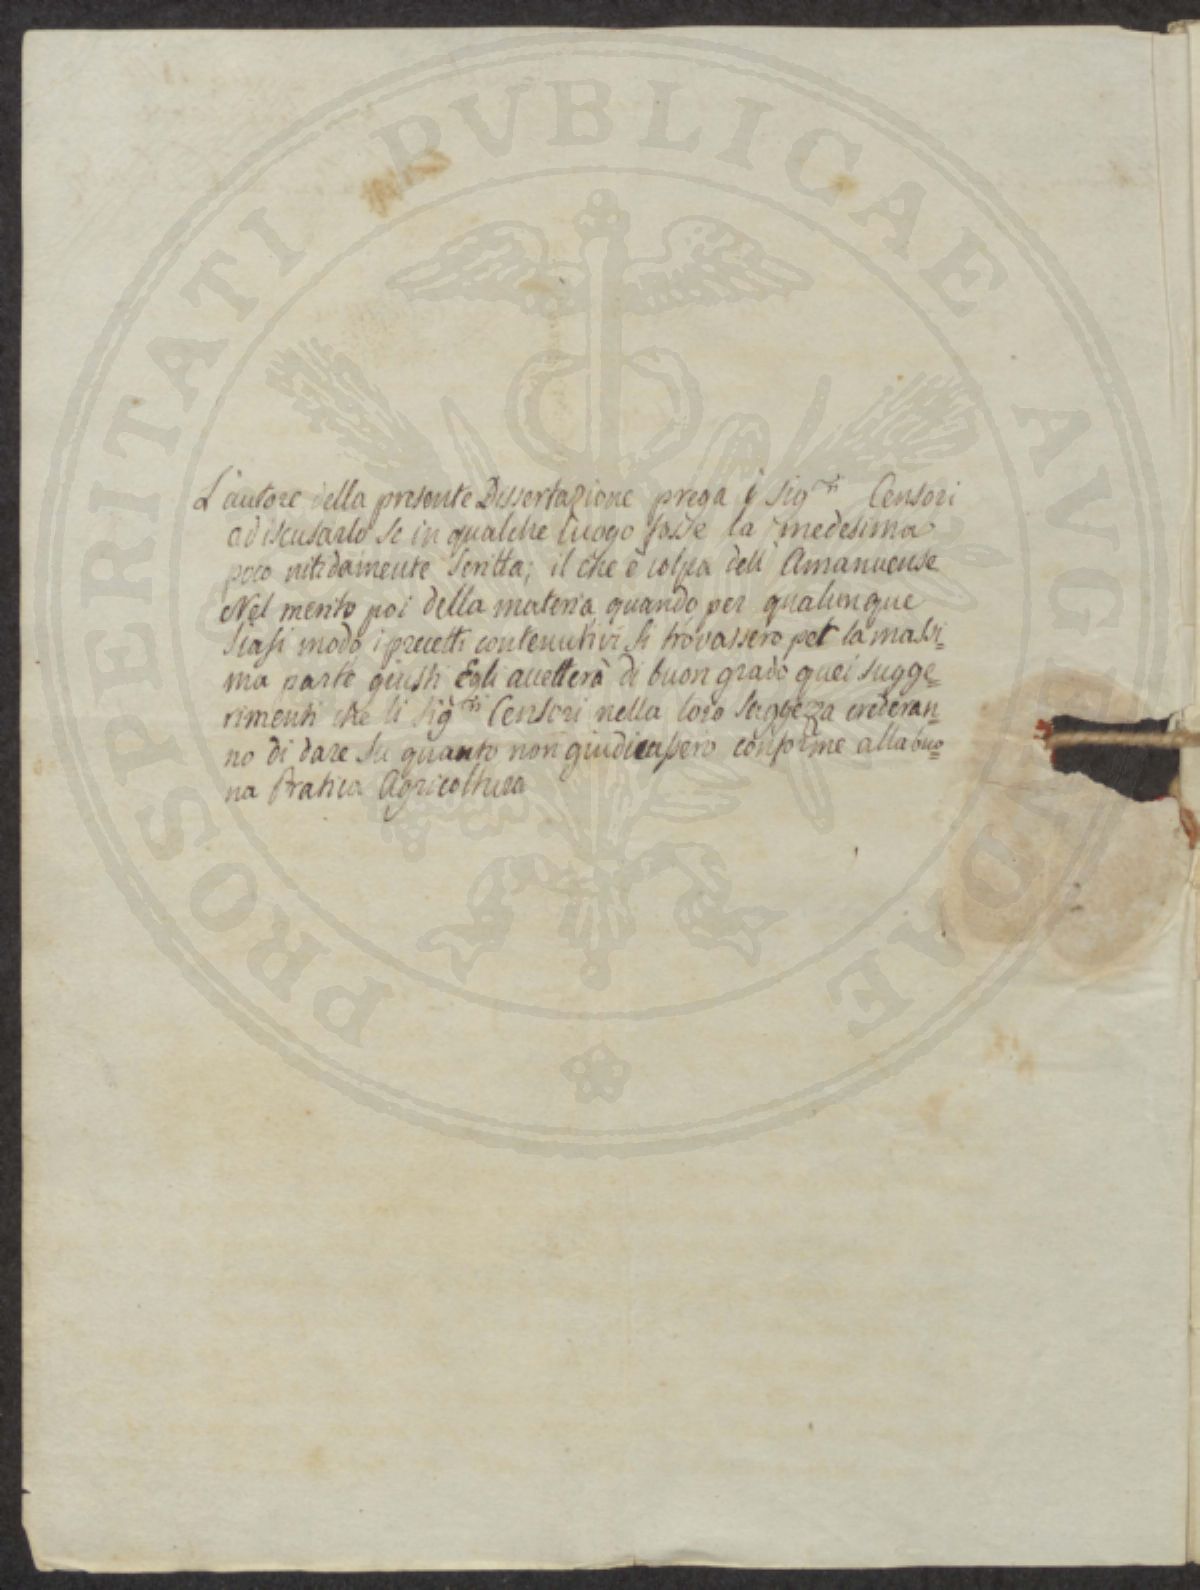 L'autore della presente Dissertazione prega i Sig.ri Censori
ad iscusarlo se in qualche luogo fosse la medesima
poco nitidamente scritta; il che è colpa dell'Amanuense
Nel merito poi della materia quando per qualunque
siasi modo i precetti contenutivi si trovassero per la massi=
ma parte giusti Egli accetterà di buon grado quei sugge=
rimenti che li Sig.ri Censori nella loro Saggezza crederan=
no di dare su quanto non giudicassero conforme alla buo=
na Pratica Agricoltura
PROSPERITATI PVBLICAE AVGENDAE